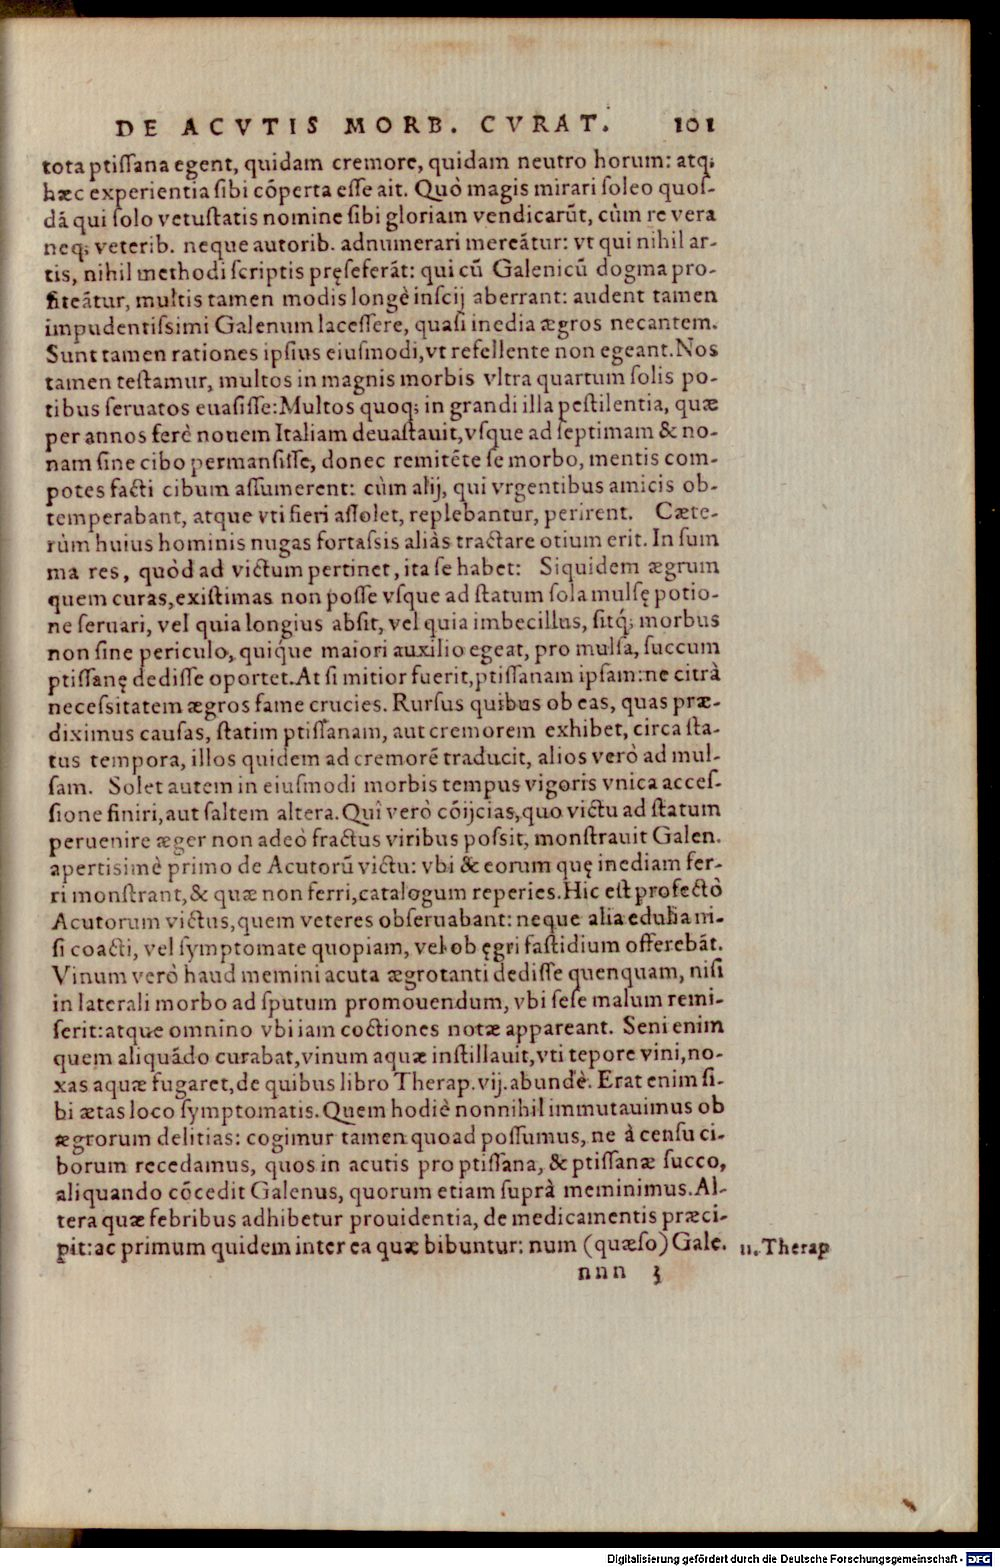 DE ACVTIS MORB. CVRAT. 101
tota ptiſſana egent, quidam cremore, quidam neutro horum: atq;
hæc experientia ſibi cōperta eſſe ait. Quò magis mirari ſoleo quoſ-
dā qui ſolo vetuſtatis nomine ſibi gloriam vendicarūt, cùm re vera
neq; veterib. neque autorib. adnumerari mereātur: vt qui nihil ar-
tis, nihil methodi ſcriptis pręſeferāt: qui cū Galenicū dogma pro-
fiteātur, multis tamen modis longè inſcij aberrant: audent tamen
impudentiſsimi Galenum laceſſere, quaſi inedia ægros necantem.
Sunt tamen rationes ipſius eiuſmodi, vt refellente non egeant. Nos
tamen teſtamur, multos in magnis morbis vltra quartum ſolis po-
tibus ſeruatos euaſiſſe: Multos quoq; in grandi illa peſtilentia, quæ
per annos ferè nouem Italiam deuaſtauit, vſque ad ſeptimam & no-
nam ſine cibo permanſiſſe, donec remitēte ſe morbo, mentis com-
potes facti cibum aſſumerent: cùm alij, qui vrgentibus amicis ob-
temperabant, atque vti fieri aſſolet, replebantur, perirent. Cæte-
rùm huius hominis nugas fortaſsis aliàs tractare otium erit. In ſum
ma res, quòd ad victum pertinet, ita ſe habet: Siquidem ægrum
quem curas, exiſtimas non poſſe vſque ad ſtatum ſola mulſę potio-
ne ſeruari, vel quia longius abſit, vel quia imbecillus, ſitq́; morbus
non ſine periculo, quíque maiori auxilio egeat, pro mulſa, ſuccum
ptiſſanę dediſſe oportet. At ſi mitior fuerit, ptiſſanam ipſam: ne citrà
neceſsitatem ægros fame crucies. Rurſus quibus ob eas, quas præ-
diximus cauſas, ſtatim ptiſſanam, aut cremorem exhibet, circa ſta-
tus tempora, illos quidem ad cremorē traducit, alios verò ad mul-
ſam. Solet autem in eiuſmodi morbis tempus vigoris vnica acceſ-
ſione finiri, aut ſaltem altera. Quî verò cōijcias, quo victu ad ſtatum
peruenire æger non adeò fractus viribus poſsit, monſtrauit Galen.
apertisimè primo de Acutorū victu: vbi & eorum quę inediam fer-
ri monſtrant, & quæ non ferri, catalogum reperies. Hic eſt profectò
Acutorum victus, quem veteres obſeruabant: neque alia edulia ni-
ſi coacti, vel ſymptomate quopiam, vel ob ęgri faſtidium offerebāt.
Vinum verò haud memini acuta ægrotanti dediſſe quenquam, niſi
in laterali morbo ad ſputum promouendum, vbi ſeſe malum remi-
ſerit: atque omnino vbi iam coctiones notæ appareant. Seni enim
quem aliquādo curabat, vinum aquæ inſtillauit, vti tepore vini, no-
xas aquæ fugaret, de quibus libro Therap. vij. abundè. Erat enim ſi-
bi ætas loco ſymptomatis. Quem hodiè nonnihil immutauimus ob
ægrorum delitias: cogimur tamen quoad poſſumus, ne à cenſu ci-
borum recedamus, quos in acutis pro ptiſſana, & ptiſſanæ ſucco,
aliquando cōcedit Galenus, quorum etiam ſuprà meminimus. Al-
tera quæ febribus adhibetur prouidentia, de medicamentis præci-
pit: ac primum quidem inter ea quæ bibuntur: num (quæſo) Gale. 11. Therap
nnn 3
Digitalisierung gefördert durch die Deutsche Forschungsgemeinschaft - DFG